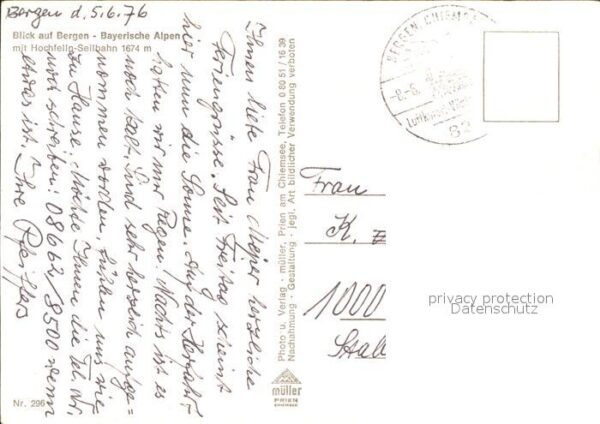 Bergen d. 5.6.76
Blick auf Bergen - Bayerische Alpen
mit Hochfelln-Seilbahn 1674 m
Ihnen liebe Frau Meyer herzliche
Feriengrüsse. Seit Freitag scheint
hier nun die Sonne. Auf der Herfahrt
hatten wir nur Regen. Nachts ist es
noch kalt. Sind sehr herzlich aufge=
nommen worden, fühlen uns wie
zu Hause. Möchte Ihnen die Tel. Nr.
noch schreiben: 08662/8500 wenn
etwas ist. Ihre
Nr. 296
Photo u. Verlag · müller, Prien am Chiemsee, Telefon 0 80 51 / 16 39
Nachahmung - Gestaltung - jegl. Art bildlicher Verwendung verboten
müller
PRIEN
CHIEMSEE
BERGEN, CHIEMG
-8.-6.
Luftkurort
82
Frau
K.
1000
privacy protection
Datenschutz